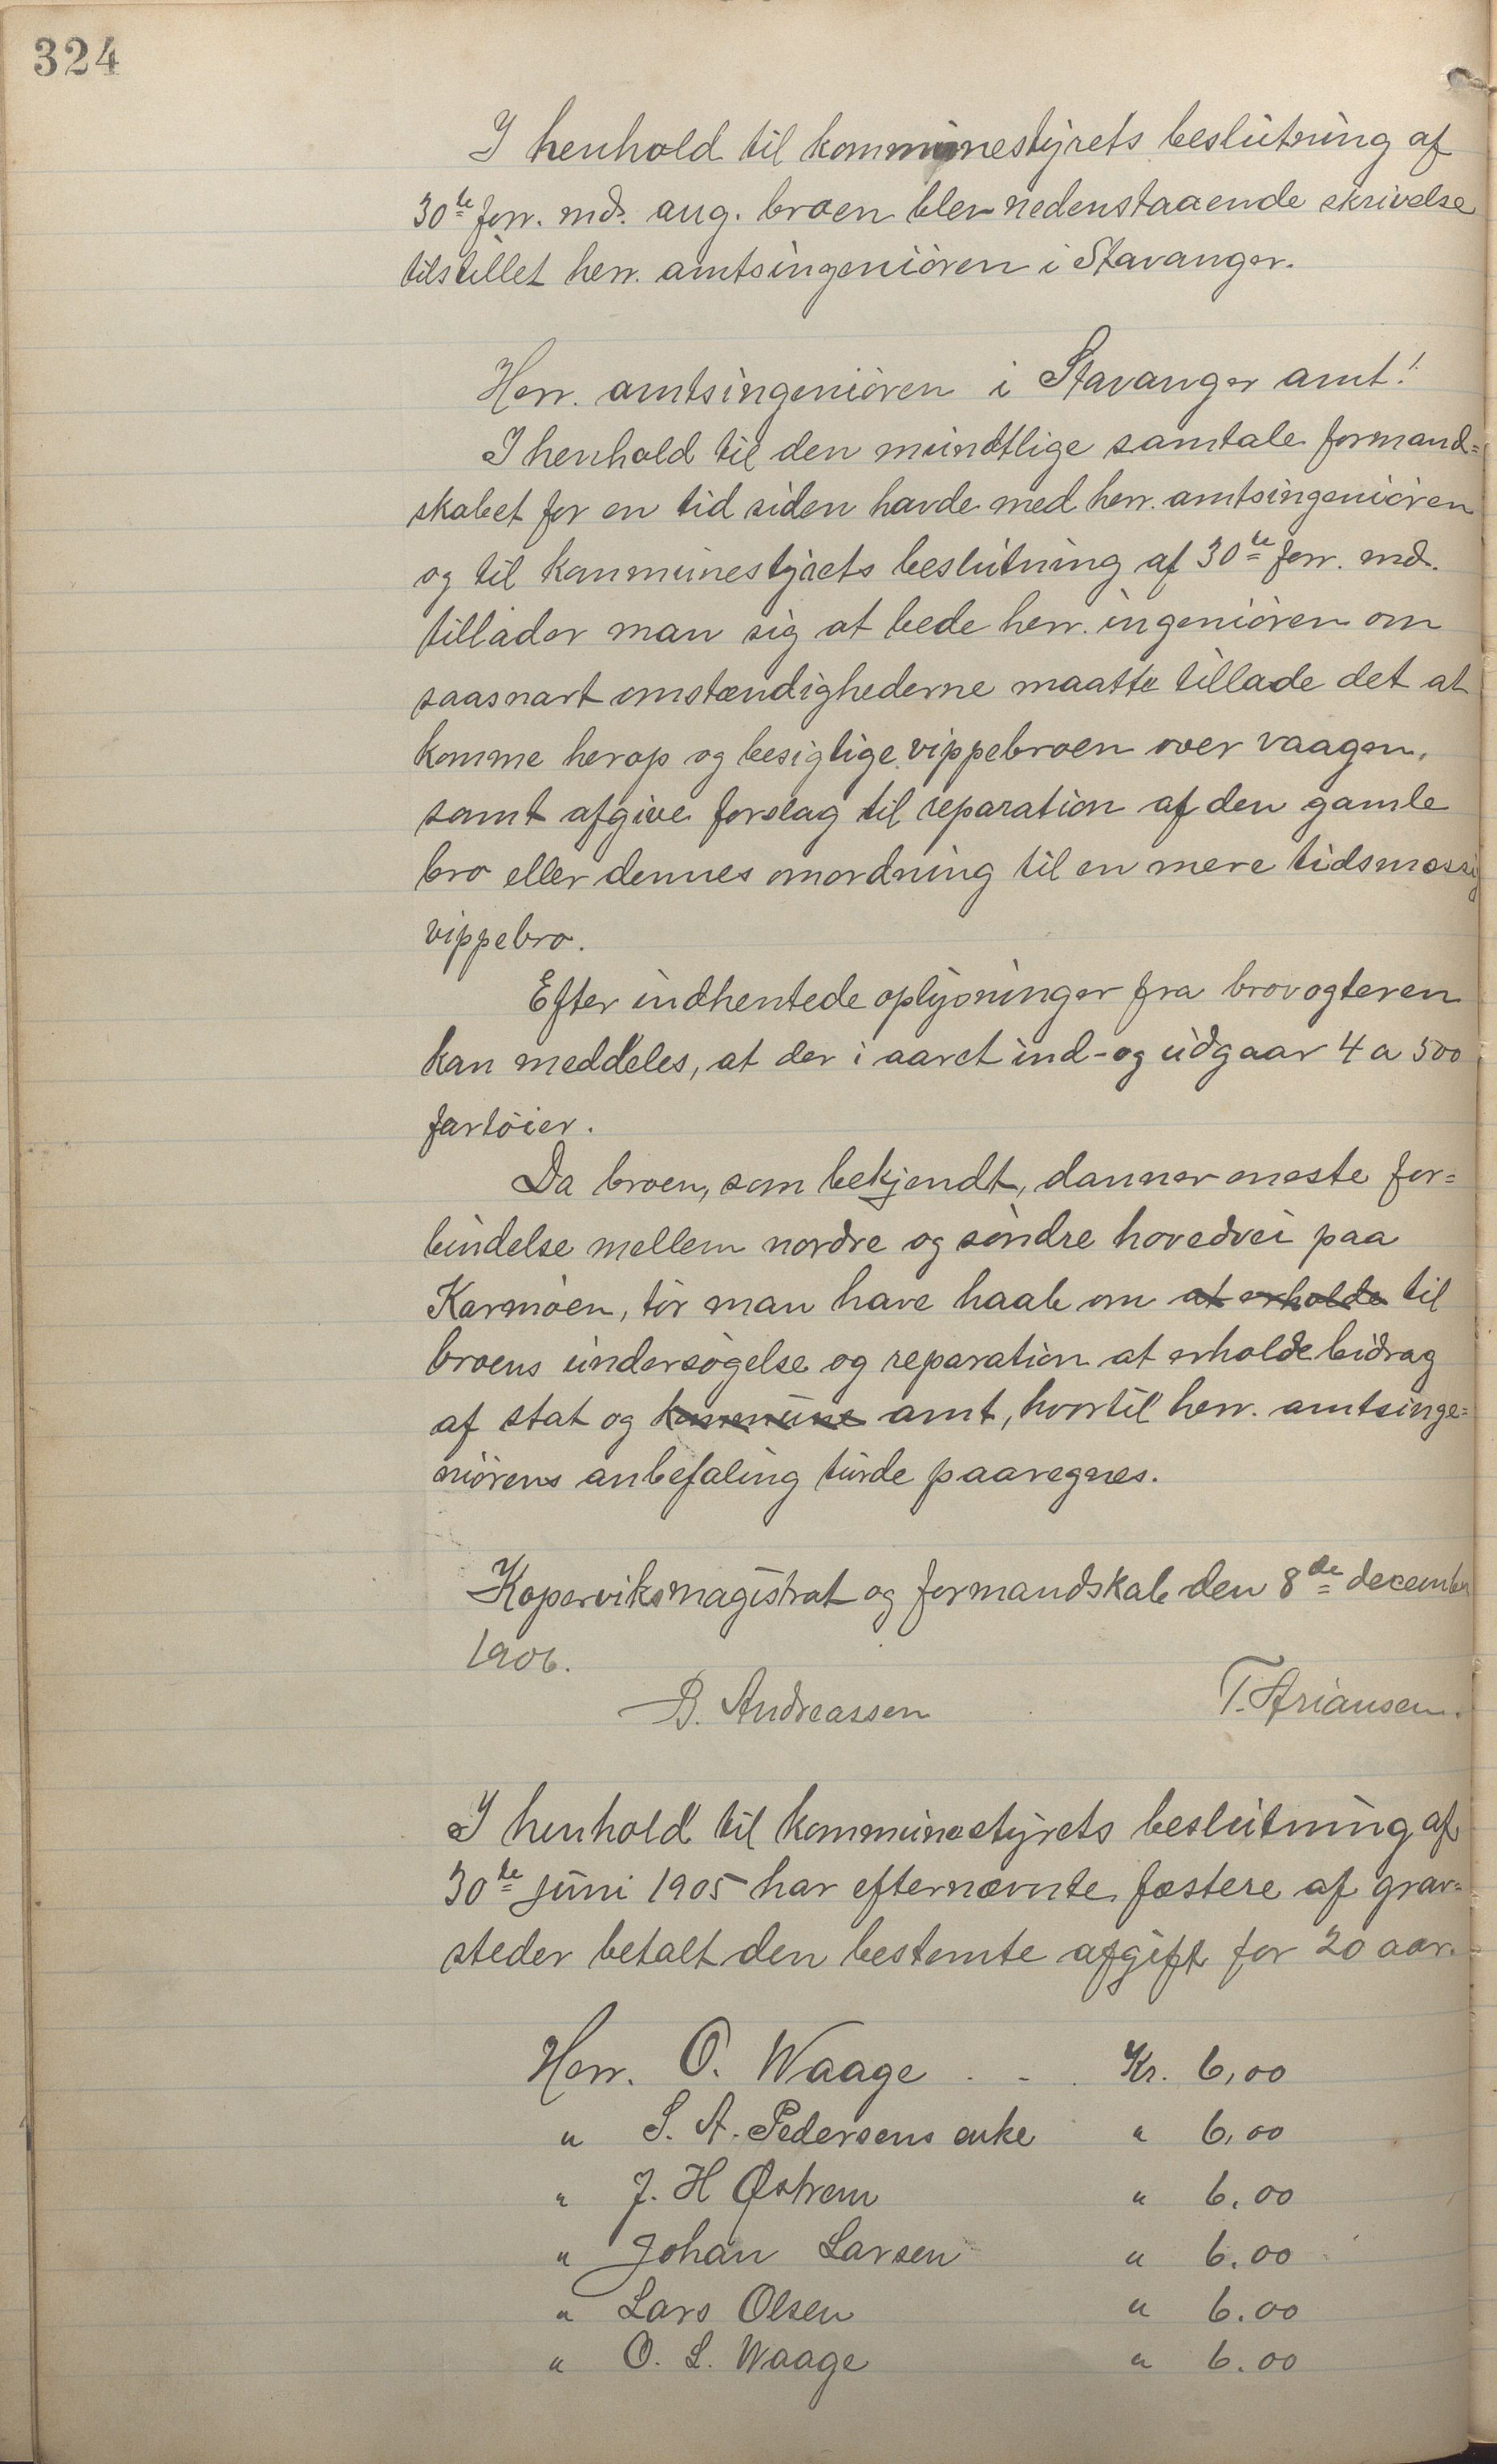 324
I henhold til kommunestyrets beslutning af
30te forr. md. ang. broen blev nedenstaaende skrivelse
tilstillet herr. amtsingeniören i Stavanger.
Herr. amtsingeniören i Stavanger amt!
I henhold til den mundtlige samtale formand=
skabet for en tid siden havde med herr. amtsingeniören
og til kommunestyrets beslutning af 30te forr. md.
tillader man sig at bede herr. ingeniören om
saasnart omstændighederne maatte tillade det at
komme herop og besigtige vippebroen over vaagen,
samt afgive forslag til reparation af den gamle
bro eller dennes omordning til en mere tidsmæssig
vippebro.
Efter indhentede oplysninger fra brovogteren
kan meddeles, at der i aaret ind- og udgaar 4 a 500
fartöier.
Da broen, som bekjendt, danner eneste for=
bindelse mellem nordre og söndre hovedvei paa
Karmöen, tör man have haab om at erholde til
broens undersögelse og reparation at erholde bidrag
af stat og kommune amt, hvortil herr. amtsinge=
niörens anbefaling turde paaregnes.
Koperviks magistrat og formandskab den 8de december
1906.
B. Andreassen T. Ariansen.
I henhold til kommunestyrets beslutning af
30te juni 1905 har efternævnte fæstere af grav=
steder betalt den bestemte afgift for 20 aar.
Herr. O. Waage . - . Kr. 6,00
" S. A. Pedersens enke " 6,00
" J. H Østrem " 6.00
" Johan Larsen " 6.00
" Lars Olsen " 6.00
" O. L. Waage " 6.00